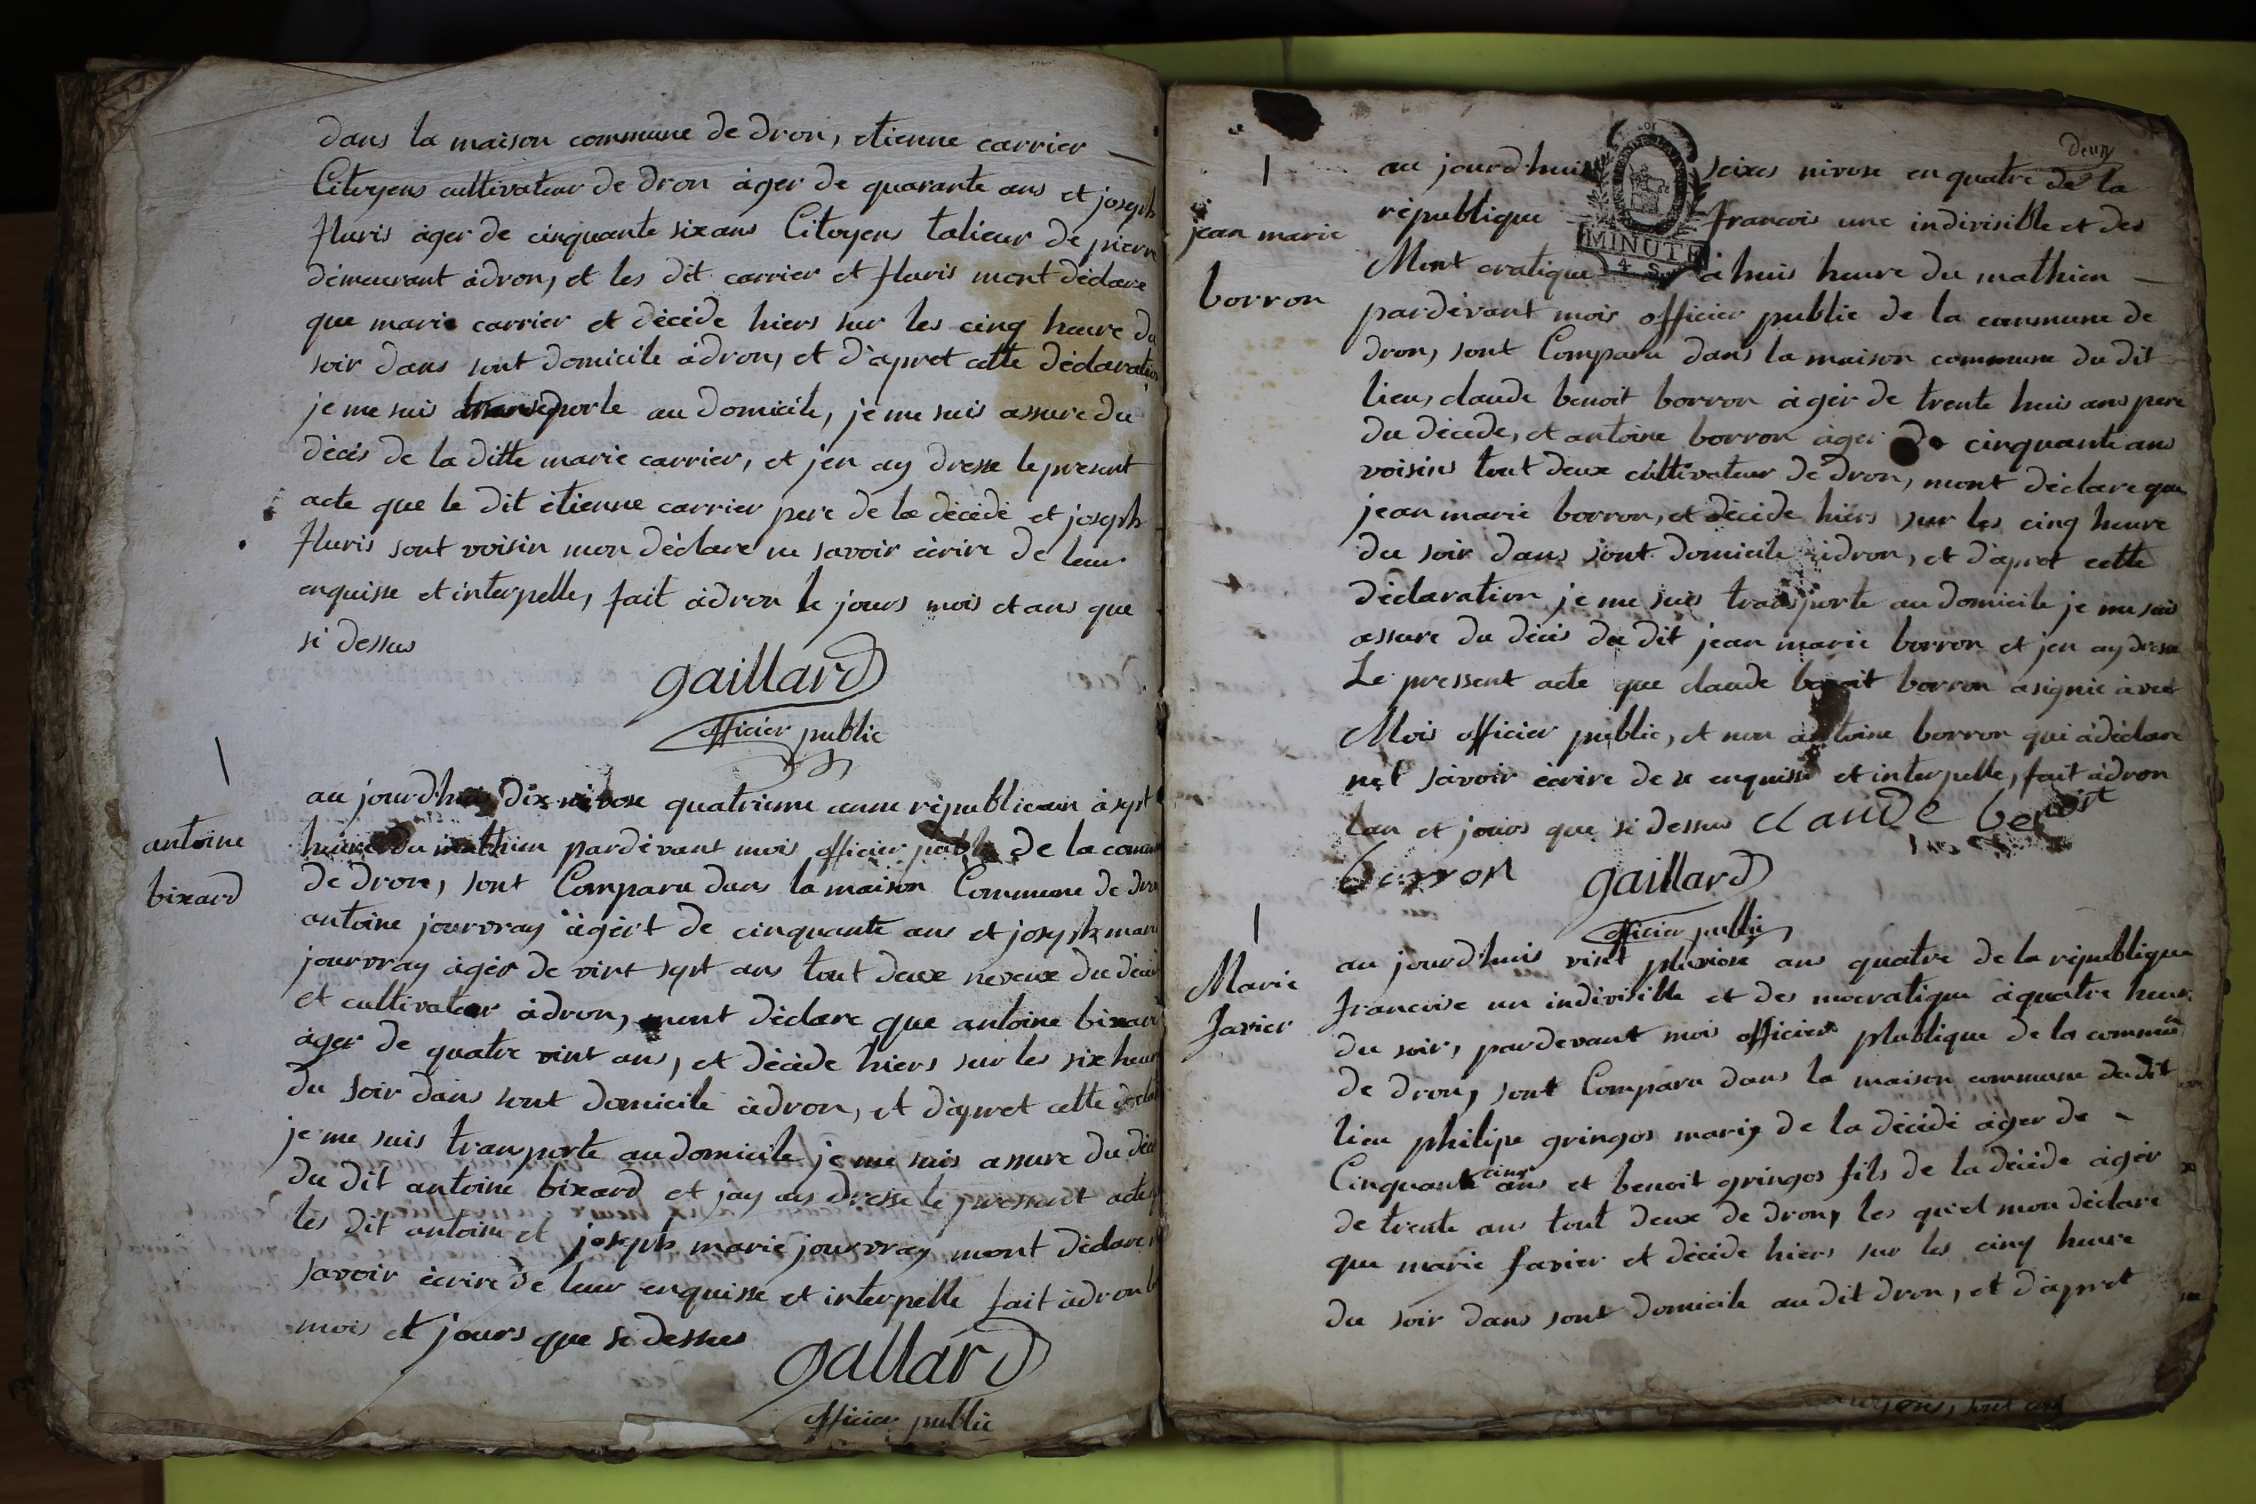 dans la maison commune de dron, etienne carrier
Citoyens cultivateur de dron àger de quarante ans et joseph
fluris àger de cinquante six ans Citoyens talieur de pierre
démeurant àdron, et les dit carrier et fluris mont déclare
que marie carrier et décéde hiers sur les cinq heure du
soir dans sont domicile àdron, et d'apret cette déclaration
je me suis transporte au domicile, je me suis assure du
décés de la ditte marie carrier, et jen ay dresse le present
acte que le dit étienne carrier pere de la décédé et joseph
fluris sont voisin mon déclare ne savoir écrire de leur
enquisse et interpelle, fait àdron le jours mois et ans que
si dessus
gaillard
officier public
antoine
bixard
au jourd'huis dix nivose quatrieme anne républicain à sept
heure du mathien pardévant mois officier public de la comm
de dron, sont Comparu dans la maison Commune de dron
antoine jourvray àgért de cinquante ans et joseph marie
jourvray àgér de vint sept ans tout deux neveux du décéd
et cultivateur àdron, mont déclare que antoine bixard
àger de quatre vint ans, et décéde hiers sur les six heure
du soir dans sont domicile àdron, et d'apret cette décla
je me suis transporte au domicile je me suis assure du déc
du dit antoine bixard et jay ans dresse le pressent acte
les dit antoine et joseph marie jourvray mont déclare
savoir écrire de leur enquisse et interpelle fait àdron le
mois et jours que si dessus
gallard
officier public
jean marie
borron
au jourd'huis seixes nivose en quatre de la
deux
république francois une indivisible et des
MINUTE
4 S
Mont cratique à huis heure du mathien
pardévant mois officier public de la commune de
dron, sont Comparu dans la maison commune du dit
lieu, claude benoit borron àgér de trente huis ans pere
du décéde, et antoine borron àger de cinquante ans
voisins tout deux cultivateur de dron, mont déclare que
jean marie borron, et décéde hiérs sur les cinq heure
du soir dans sont domicile àdron, et d'apret cette
déclaration je me suis transporte au domicile je me suis
assure du décis du dit jean marie borron et jen ay dresse
Le pressent acte que claude benoit borron a signie àvec
Mois officier public, et non antoine borron qui àdéclare
net savoir écrire de se enquisse et interpelle, fait àdron
lan et jours que si dessus claude benoit
borron gaillard
officier public
Marie
favier
au jourd'huis vint pluviose ans quatre de la république
francoise un indivisible et des mocratique àquatre heure
du soir, pardevant mois officier plublique de la commune
de dron, sont Comparu dans la maison commune du dit
lieu philipe gringos mariy de la décédé àger de
Cinquante cinq ans et benoit gringos fils de la décéde àgér
de trente ans tout deux de dron, les qu'el mon déclare
que marie favier et décéde hiers sur les cinq heure
du soir dans sont domicile au dit dron, et d'apret